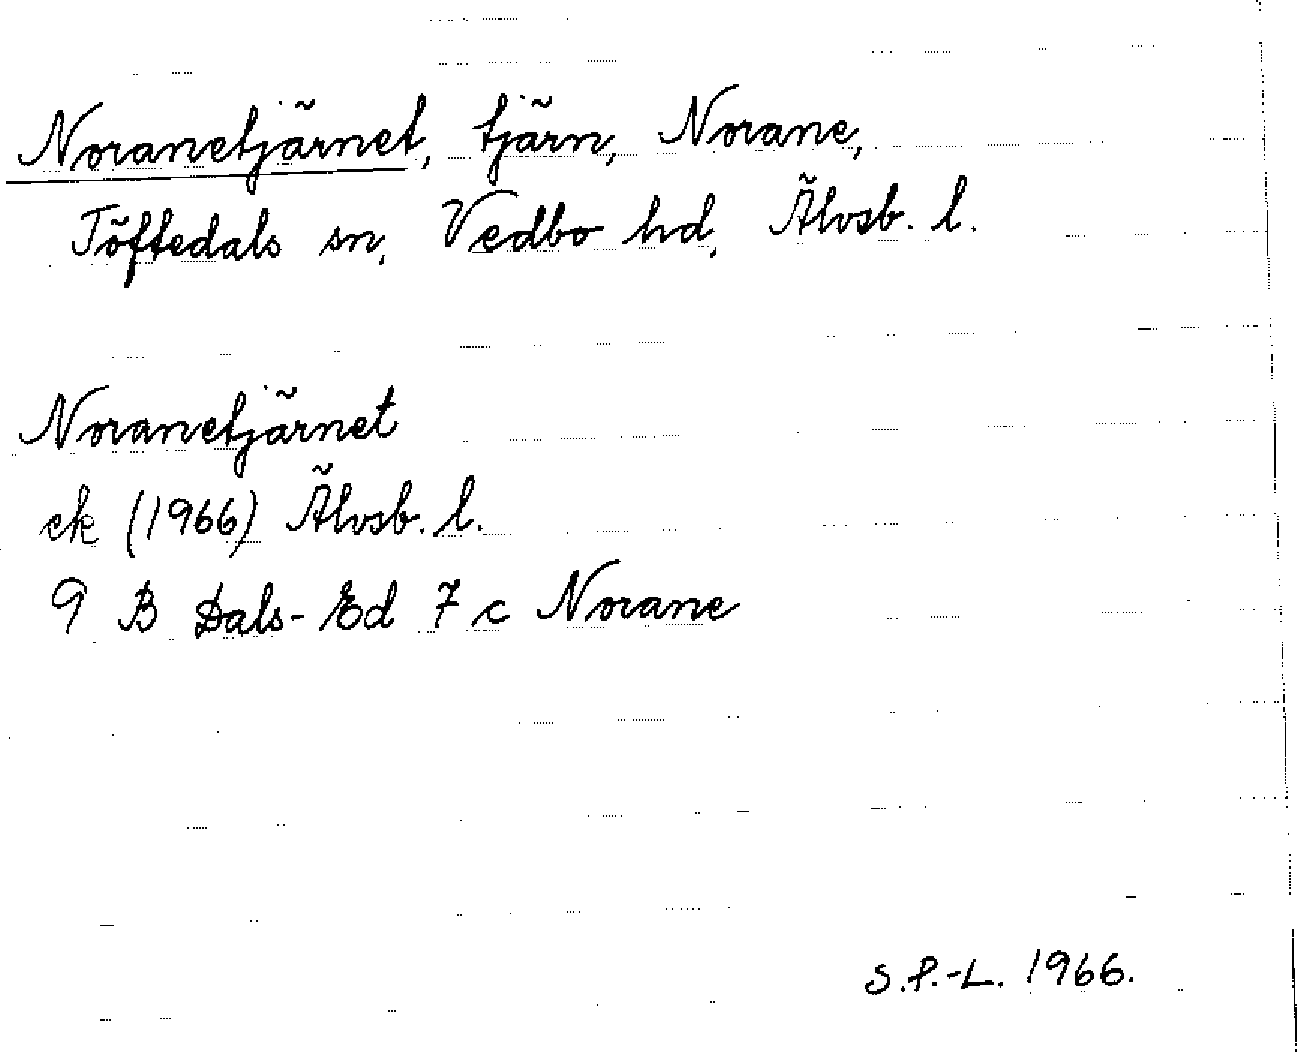 Noranetjärnet, tjärn, Norane,
Töftedals sn, Vedbo hd, Älvsb. l.
Noranetjärnet
ek (1966) Älvsb. l.
9 B Dals-Ed 7 c Norane
S.P.-L. 1966.